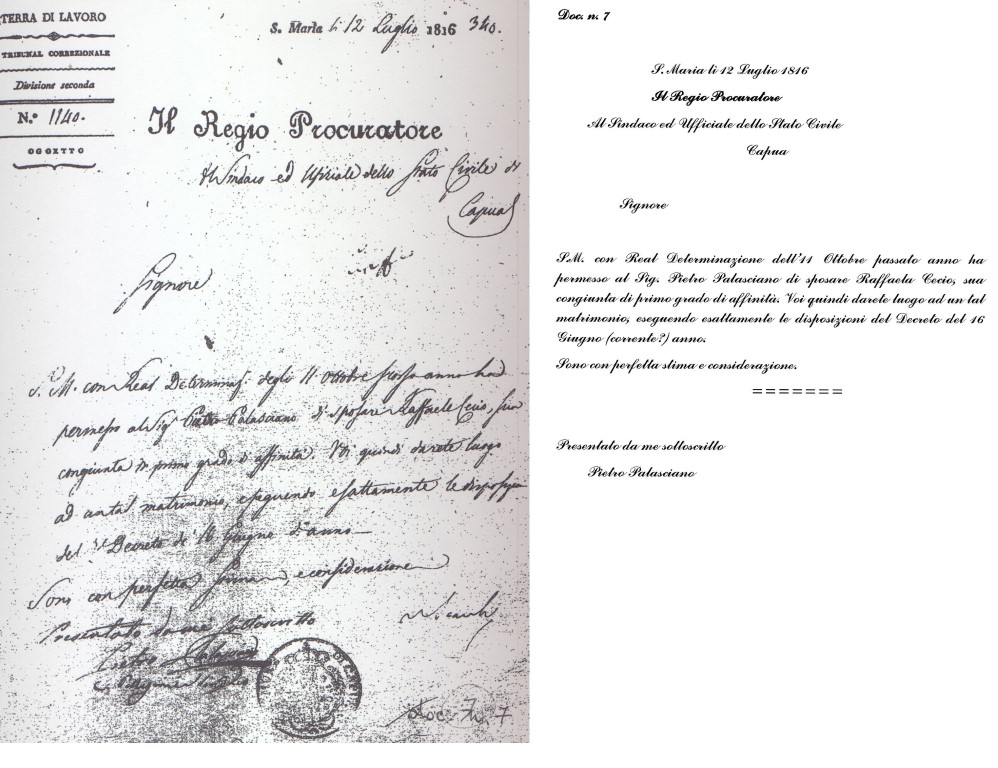 TERRA DI LAVORO
TRIBUNAL CORREZIONALE
Divisione seconda
N.º 1140.
OGGETTO
S. Maria li 12 Luglio 1816 340.
Il Regio Procuratore
Al Sindaco ed Uffiziale dello Stato Civile di
Capua
Signore
S. M. con Real Determinaz. degli 11 ottobre scorso anno ha
permesso al Sigr Pietro Palasciano di sposare Raffaele Cecio, sua
congiunta in primo grado d'affinità. Voi quindi darete luogo
ad un tal matrimonio, eseguendo esattamente le disposizioni
del Decreto de' 16 Giugno d.° anno
Sono con perfetta stima, e considerazione
Presentato da me sottoscritto
Pietro Palasciano
doc. n. 7
Doc. n. 7
S. Maria li 12 Luglio 1816
Il Regio Procuratore
Al Sindaco ed Ufficiale dello Stato Civile
Capua
Signore
S.M. con Real Determinazione dell'11 Ottobre passato anno ha
permesso al Sig. Pietro Palasciano di sposare Raffaela Cecio, sua
congiunta di primo grado di affinità. Voi quindi darete luogo ad un tal
matrimonio, eseguendo esattamente le disposizioni del Decreto del 16
Giugno (corrente?) anno.
Sono con perfetta stima e considerazione.
=======
Presentato da me sottoscritto
Pietro Palasciano